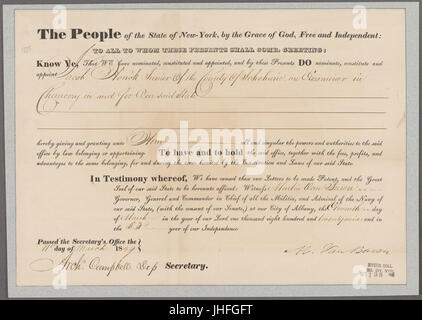 The People of the State of New-York, by the Grace of God, Free and Independent:
TO ALL TO WHOM THESE PRESENTS SHALL COME, GREETING:
Know Ye, That We have nominated, constituted and appointed, and by these Presents DO nominate, constitute and
appoint Jacob Houck Junior of the County of Schoharie an Examiner in
Chancery in and for Our said State
hereby giving and granting unto him all and singular the powers and authorities to the said
office by law belonging or appertaining. To have and to hold the said office, together with the fees, profits, and
advantages to the same belonging, for and during the time limited by the Constitution and Laws of our said State.
In Testimony whereof, We have caused these our Letters to be made Patent, and the Great
Seal of our said State to be hereunto affixed: Witness Martin Van Buren
Governor, General and Commander in Chief of all the Militia, and Admiral of the Navy
of our said State, (with the consent of our Senate,) at our City of Albany, the day
of March in the year of our Lord one thousand eight hundred and twenty nine and in
the 53d year of our Independence
Passed the Secretary's Office the
11 day of March 1829
M. Van Buren
Arch. Campbell Dep Secretary.
alamy
Image ID: JHFGFT
www.alamy.com